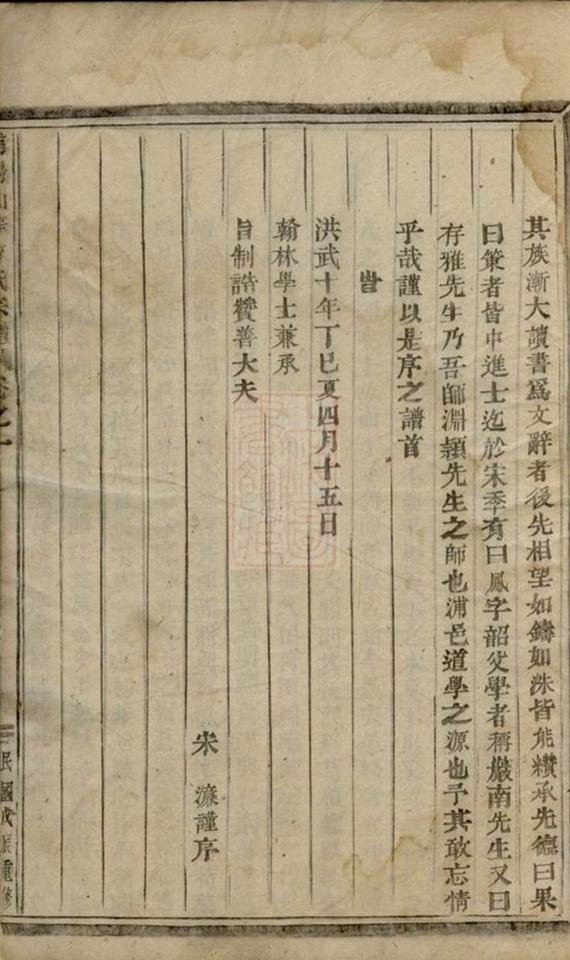 其族漸大讀書爲文辭者後先相望如鑄如洙皆能纘承先德曰果
曰策者皆中進士迄於宋季有曰鳳字韶父學者稱巖南先生又曰
存雅先生乃吾師淵頴先生之師也浦邑道學之源也予其敢忘情
乎哉謹以是序之譜首
旹
洪武十年丁巳夏四月十五日
翰林學士兼承
旨制誥贊善大夫
宋濂謹序
氏宗譜卷之一
民國戊辰重修